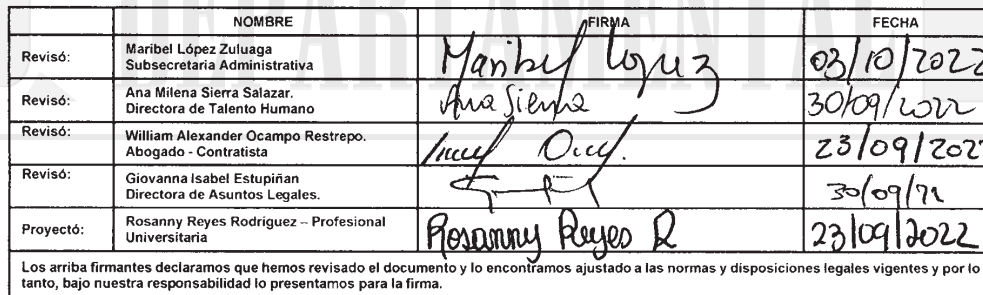 DEPARTAMENTAL
NOMBRE FIRMA FECHA
Revisó: Maribel López Zuluaga
Subsecretaria Administrativa Maribel López 03/10/2022
Revisó: Ana Milena Sierra Salazar.
Directora de Talento Humano Ana Sierra 30/09/2022
Revisó: William Alexander Ocampo Restrepo.
Abogado - Contratista 23/09/2022
Revisó: Giovanna Isabel Estupiñan
Directora de Asuntos Legales. 30/09/22
Proyectó: Rosanny Reyes Rodríguez – Profesional
Universitaria Rosanny Reyes R 23/09/2022
Los arriba firmantes declaramos que hemos revisado el documento y lo encontramos ajustado a las normas y disposiciones legales vigentes y por lo
tanto, bajo nuestra responsabilidad lo presentamos para la firma.